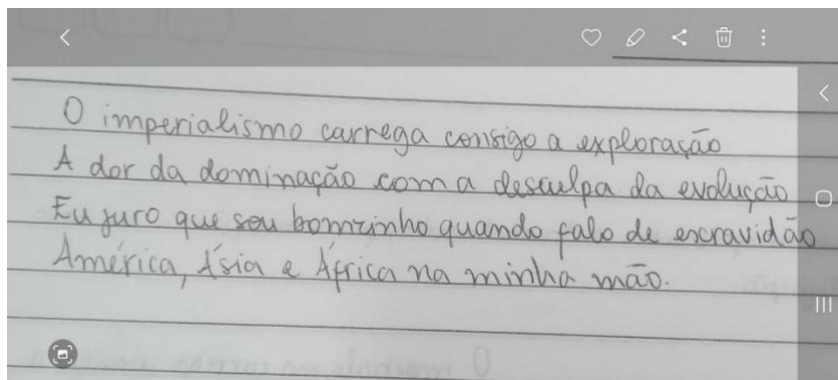 O imperialismo carrega consigo a exploração
A dor da dominação com a desculpa da evolução
Eu juro que sou bomzinho quando falo de escravidão
América, Ásia e África na minha mão.